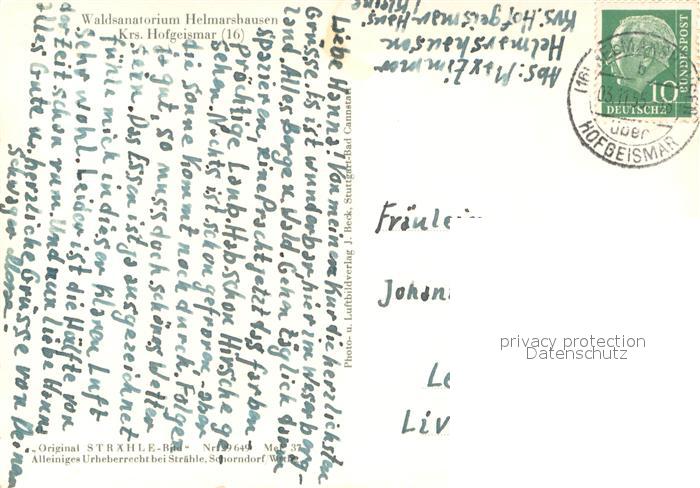 Waldsanatorium Helmarshausen
Krs. Hofgeismar (16)
Liebe Hanna! Von meiner Kur die herzlichsten
Grüsse. Es ist wunderbar hier im Weserberg-
land. Alles Berge u. Wald. Gehn täglich dann
spazieren, eine Pracht jetzt das farben-
prächtige Laub. Hab schon Hirsche ge-
sehn. Nachts ist schon gefroren - aber
die Sonne kommt noch durch. Folgen
do gut, so muss doch schönes Wetter
sein. Das Essen ist ja ausgezeichnet
fühle mich in dieser klaren Luft
sehr wohl. Leider ist die Hälfte von
der Zeit schon rum. Und nun liebe Hanna
alles Gute u. herzliche Grüsse von Deinem
Schwager
Abs: Max Zimmer
Helmarshausen
Krs. Hofgeismar-Hans.
10
DEUTSCHE
BUNDESPOST
über
HOFGEISMAR
Fräulein
Johann
Le
Liv
privacy protection
Datenschutz
Photo- u. Luftbildverlag J. Beck, Stuttgart-Bad Cannstatt
„Original STRÄHLE-Bild" Nr. 29649 Mer 37
Alleiniges Urheberrecht bei Strähle, Schorndorf/Wttbg.